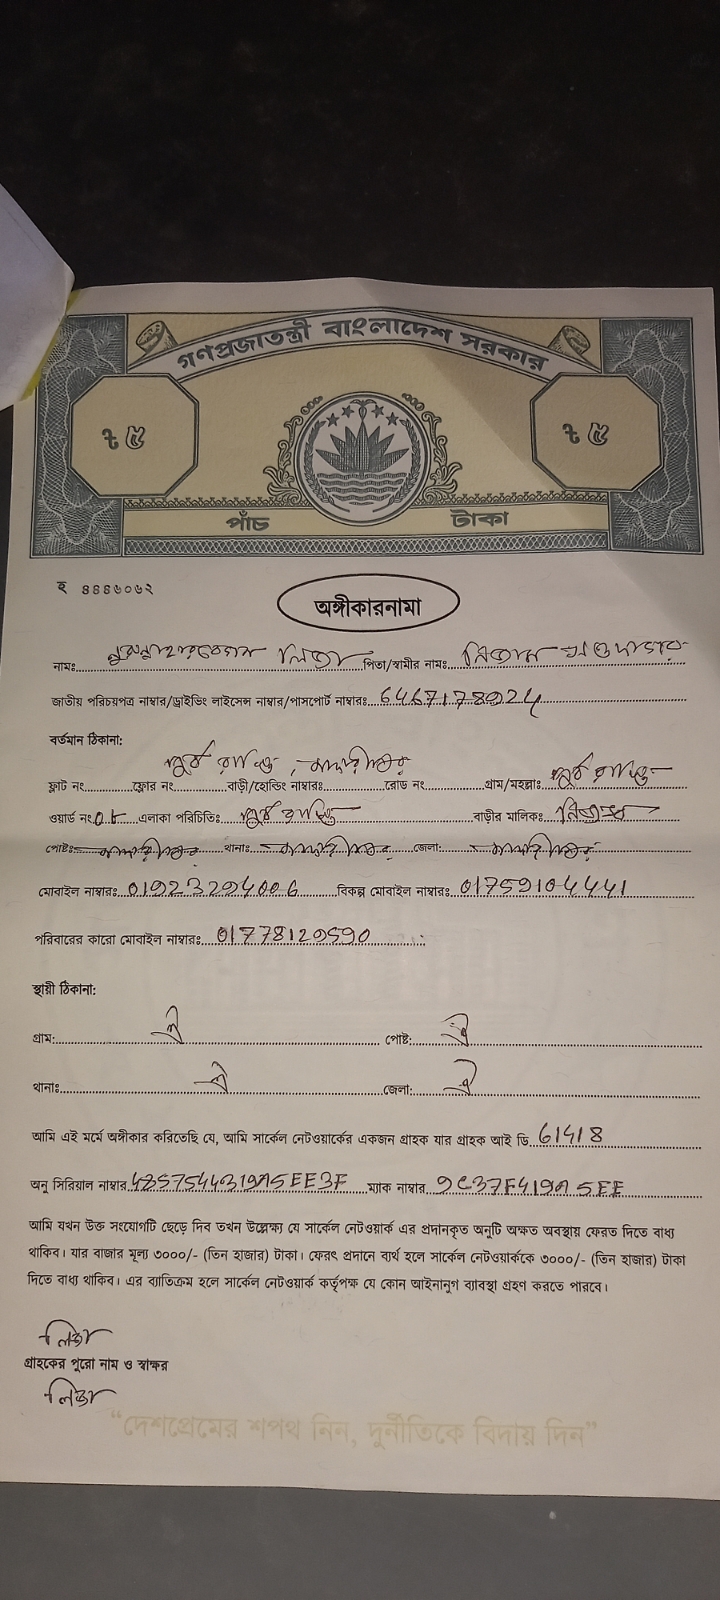 গণপ্রজাতন্ত্রী বাংলাদেশ সরকার
৳ ৫ ৳ ৫
পাঁচ টাকা
হ ৪৪৪৬০৬২
অঙ্গীকারনামা
নামঃ লিজা পিতা/স্বামীর নামঃ
জাতীয় পরিচয়পত্র নাম্বার/ড্রাইভিং লাইসেন্স নাম্বার/পাসপোর্ট নাম্বারঃ 6467178924
বর্তমান ঠিকানা:
ফ্লাট নং ফ্লোর নং বাড়ী/হোল্ডিং নাম্বারঃ রোড নং গ্রাম/মহল্লাঃ
ওয়ার্ড নং এলাকা পরিচিতিঃ বাড়ীর মালিকঃ
পোষ্টঃ থানাঃ জেলা:
মোবাইল নাম্বারঃ 01923294006 বিকল্প মোবাইল নাম্বারঃ 01759104441
পরিবারের কারো মোবাইল নাম্বারঃ 01778129590
স্থায়ী ঠিকানা:
গ্রাম: ঐ পোষ্ট: ঐ
থানাঃ ঐ জেলা: ঐ
আমি এই মর্মে অঙ্গীকার করিতেছি যে, আমি সার্কেল নেটওয়ার্কের একজন গ্রাহক যার গ্রাহক আই ডি 61418
অনু সিরিয়াল নাম্বার 4857544319A5EE3F ম্যাক নাম্বার 9C37F419A5EE
আমি যখন উক্ত সংযোগটি ছেড়ে দিব তখন উল্লেক্ষ্য যে সার্কেল নেটওয়ার্ক এর প্রদানকৃত অনুটি অক্ষত অবস্থায় ফেরত দিতে বাধ্য
থাকিব। যার বাজার মূল্য ৩০০০/- (তিন হাজার) টাকা। ফেরৎ প্রদানে ব্যর্থ হলে সার্কেল নেটওয়ার্ককে ৩০০০/- (তিন হাজার) টাকা
দিতে বাধ্য থাকিব। এর ব্যাতিক্রম হলে সার্কেল নেটওয়ার্ক কর্তৃপক্ষ যে কোন আইনানুগ ব্যাবস্থা গ্রহণ করতে পারবে।
লিজা
গ্রাহকের পুরো নাম ও স্বাক্ষর
লিজা
“দেশপ্রেমের শপথ নিন, দুর্নীতিকে বিদায় দিন”